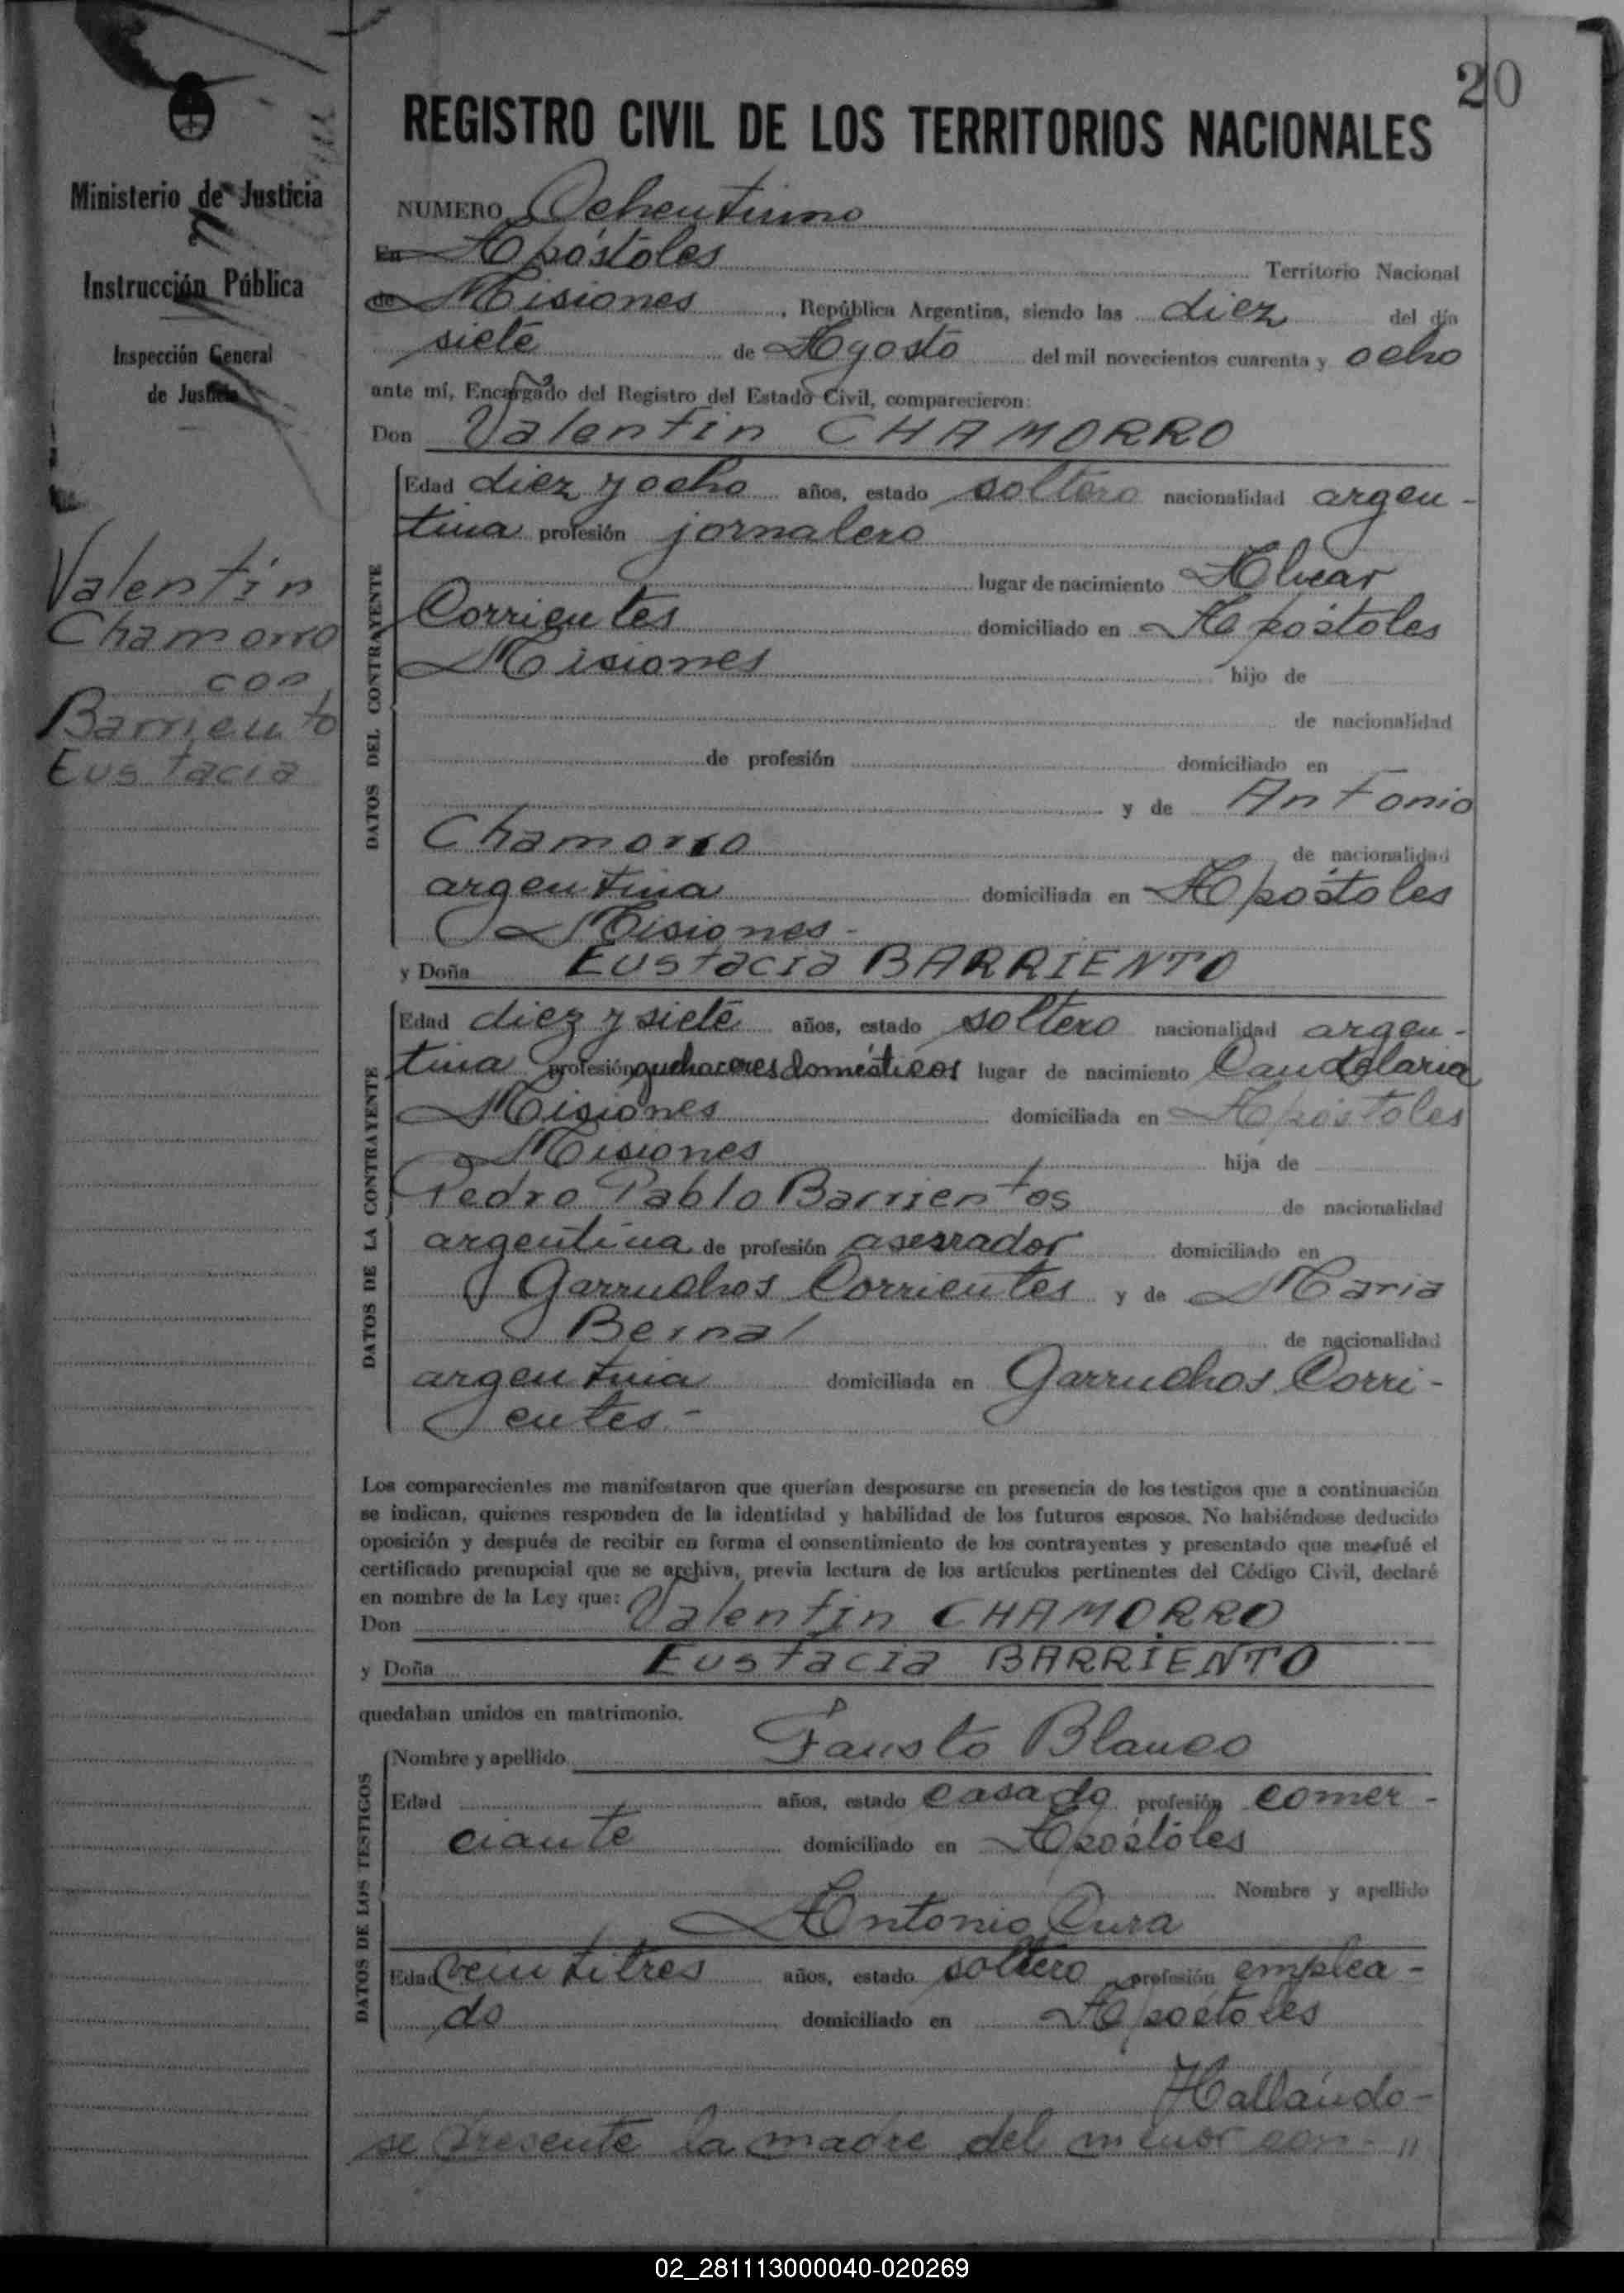 20
REGISTRO CIVIL DE LOS TERRITORIOS NACIONALES
Ministerio de Justicia
Instrucción Pública
Inspección General
de Justicia
Valentin
Chamorro
con
Barriento
Eustacia
NUMERO Ochentiuno
En Apóstoles Territorio Nacional
de Misiones, República Argentina, siendo las diez del día
siete de Agosto del mil novecientos cuarenta y ocho
ante mí, Encargado del Registro del Estado Civil, comparecieron:
Don Valentin CHAMORRO
DATOS DEL CONTRAYENTE
Edad diez y ocho años, estado soltero nacionalidad argen-
tina profesión jornalero
lugar de nacimiento Alvear
Corrientes domiciliado en Apóstoles
Misiones hijo de
de nacionalidad
de profesión domiciliado en
y de Antonio
Chamorro de nacionalidad
argentina domiciliada en Apóstoles
Misiones-
y Doña Eustacia BARRIENTO
DATOS DE LA CONTRAYENTE
Edad diez y siete años, estado soltero nacionalidad argen-
tina profesión quehaceres domésticos lugar de nacimiento Candelaria
Misiones domiciliada en Apóstoles
Misiones hija de
Pedro Pablo Barrientos de nacionalidad
argentina de profesión aserrador domiciliado en
Garruchos Corrientes y de Maria
Bernal de nacionalidad
argentina domiciliada en Garruchos Corri-
entes-
Los comparecientes me manifestaron que querían desposarse en presencia de los testigos que a continuación
se indican, quienes responden de la identidad y habilidad de los futuros esposos. No habiéndose deducido
oposición y después de recibir en forma el consentimiento de los contrayentes y presentado que me fué el
certificado prenupcial que se archiva, previa lectura de los artículos pertinentes del Código Civil, declaré
en nombre de la Ley que:
Don Valentin CHAMORRO
y Doña Eustacia BARRIENTO
quedaban unidos en matrimonio.
DATOS DE LOS TESTIGOS
Nombre y apellido Fausto Blanco
Edad años, estado casado profesión comer-
ciante domiciliado en Apóstoles
Nombre y apellido
Antonio Cura
Edad veintitres años, estado soltero profesión emplea-
do domiciliado en Apóstoles
Hallándo-
se presente la madre del menor con-"
02_281113000040-020269